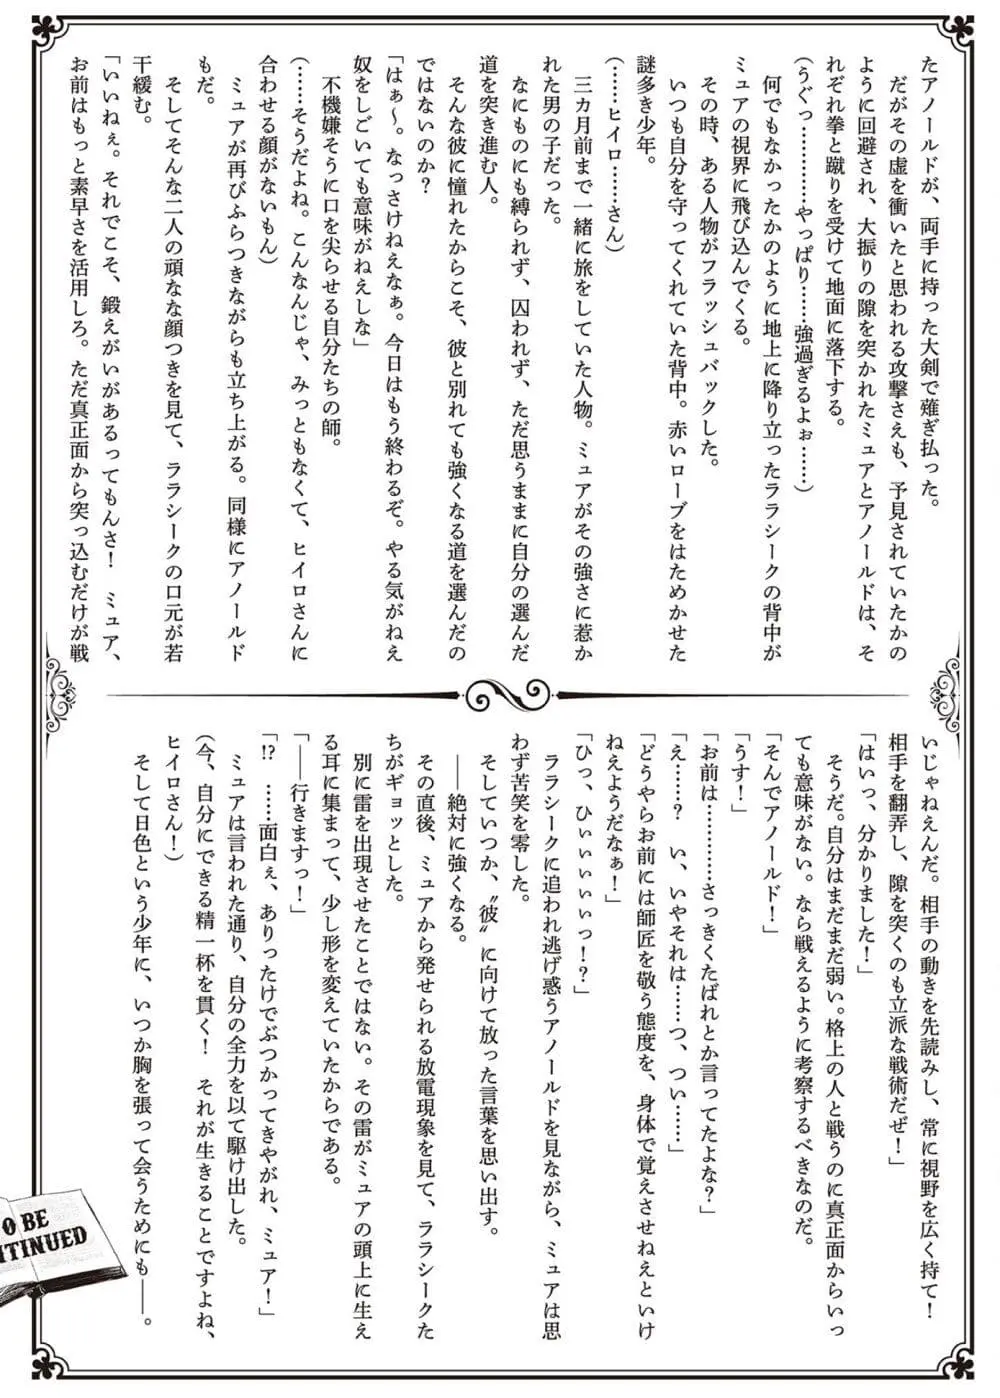 たアノールドが、両手に持った大剣で薙ぎ払った。
　だがその虚を衝いたと思われる攻撃さえも、予見されていたかの
ように回避され、大振りの隙を突かれたミュアとアノールドは、そ
れぞれ拳と蹴りを受けて地面に落下する。
（うぐっ…………やっぱり……強過ぎるよぉ……）
　何でもなかったかのように地上に降り立ったララシークの背中が
ミュアの視界に飛び込んでくる。
　その時、ある人物がフラッシュバックした。
　いつも自分を守ってくれていた背中。赤いローブをはためかせた
謎多き少年。
（……ヒイロ……さん）
　三カ月前まで一緒に旅をしていた人物。ミュアがその強さに惹か
れた男の子だった。
　なにものにも縛られず、囚われず、ただ思うままに自分の選んだ
道を突き進む人。
　そんな彼に憧れたからこそ、彼と別れても強くなる道を選んだの
ではないのか？
「はぁ～。なっさけねえなぁ。今日はもう終わるぞ。やる気がねえ
奴をしごいても意味がねえしな」
　不機嫌そうに口を尖らせる自分たちの師。
（……そうだよね。こんなんじゃ、みっともなくて、ヒイロさんに
合わせる顔がないもん）
　ミュアが再びふらつきながらも立ち上がる。同様にアノールド
もだ。
　そしてそんな二人の頑なな顔つきを見て、ララシークの口元が若
干緩む。
「いいねぇ。それでこそ、鍛えがいがあるってもんさ！　ミュア、
お前はもっと素早さを活用しろ。ただ真正面から突っ込むだけが戦
いじゃねえんだ。相手の動きを先読みし、常に視野を広く持て！
相手を翻弄し、隙を突くのも立派な戦術だぜ！」
「はいっ、分かりました！」
　そうだ。自分はまだまだ弱い。格上の人と戦うのに真正面からいっ
ても意味がない。なら戦えるように考察するべきなのだ。
「そんでアノールド！」
「うす！」
「お前は…………さっきくたばれとか言ってたよな？」
「え……？　い、いやそれは……つ、つい……」
「どうやらお前には師匠を敬う態度を、身体で覚えさせねえといけ
ねえようだなぁ！」
「ひっ、ひぃぃぃぃっ！？」
　ララシークに追われ逃げ惑うアノールドを見ながら、ミュアは思
わず苦笑を零した。
　そしていつか、〝彼〟に向けて放った言葉を思い出す。
　――絶対に強くなる。
　その直後、ミュアから発せられる放電現象を見て、ララシークた
ちがギョッとした。
　別に雷を出現させたことではない。その雷がミュアの頭上に生え
る耳に集まって、少し形を変えていたからである。
「――行きますっ！」
「!?　……面白ぇ、ありったけでぶつかってきやがれ、ミュア！」
　ミュアは言われた通り、自分の全力を以て駆け出した。
（今、自分にできる精一杯を貫く！　それが生きることですよね、
ヒイロさん！）
　そして日色という少年に、いつか胸を張って会うためにも――。
O BE
TINUED